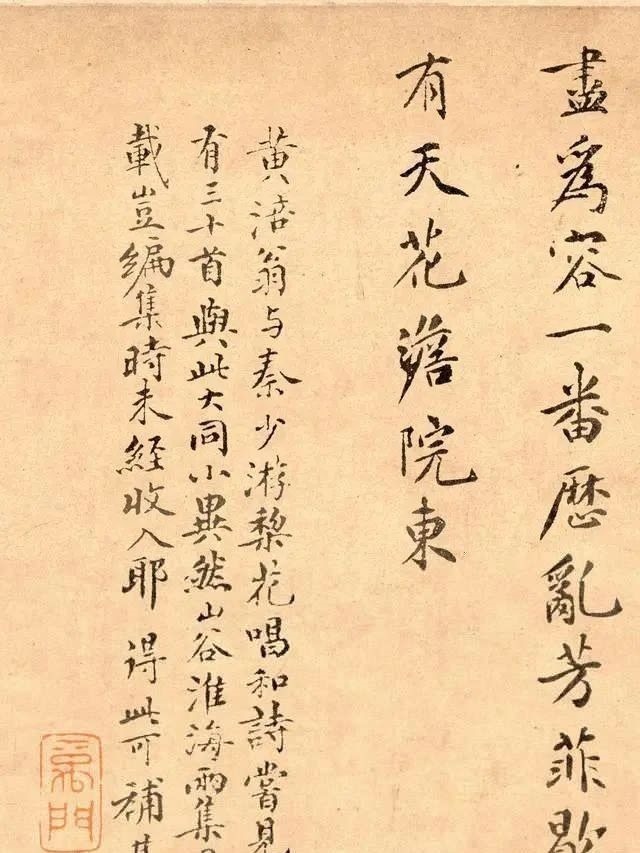 盡爲容一番歷亂芳菲歇
有天花澹院東
黄涪翁与秦少游棃花唱和詩嘗見
有三十首與此大同小異然山谷淮海兩集
載豈編集時未經收入耶得此可補